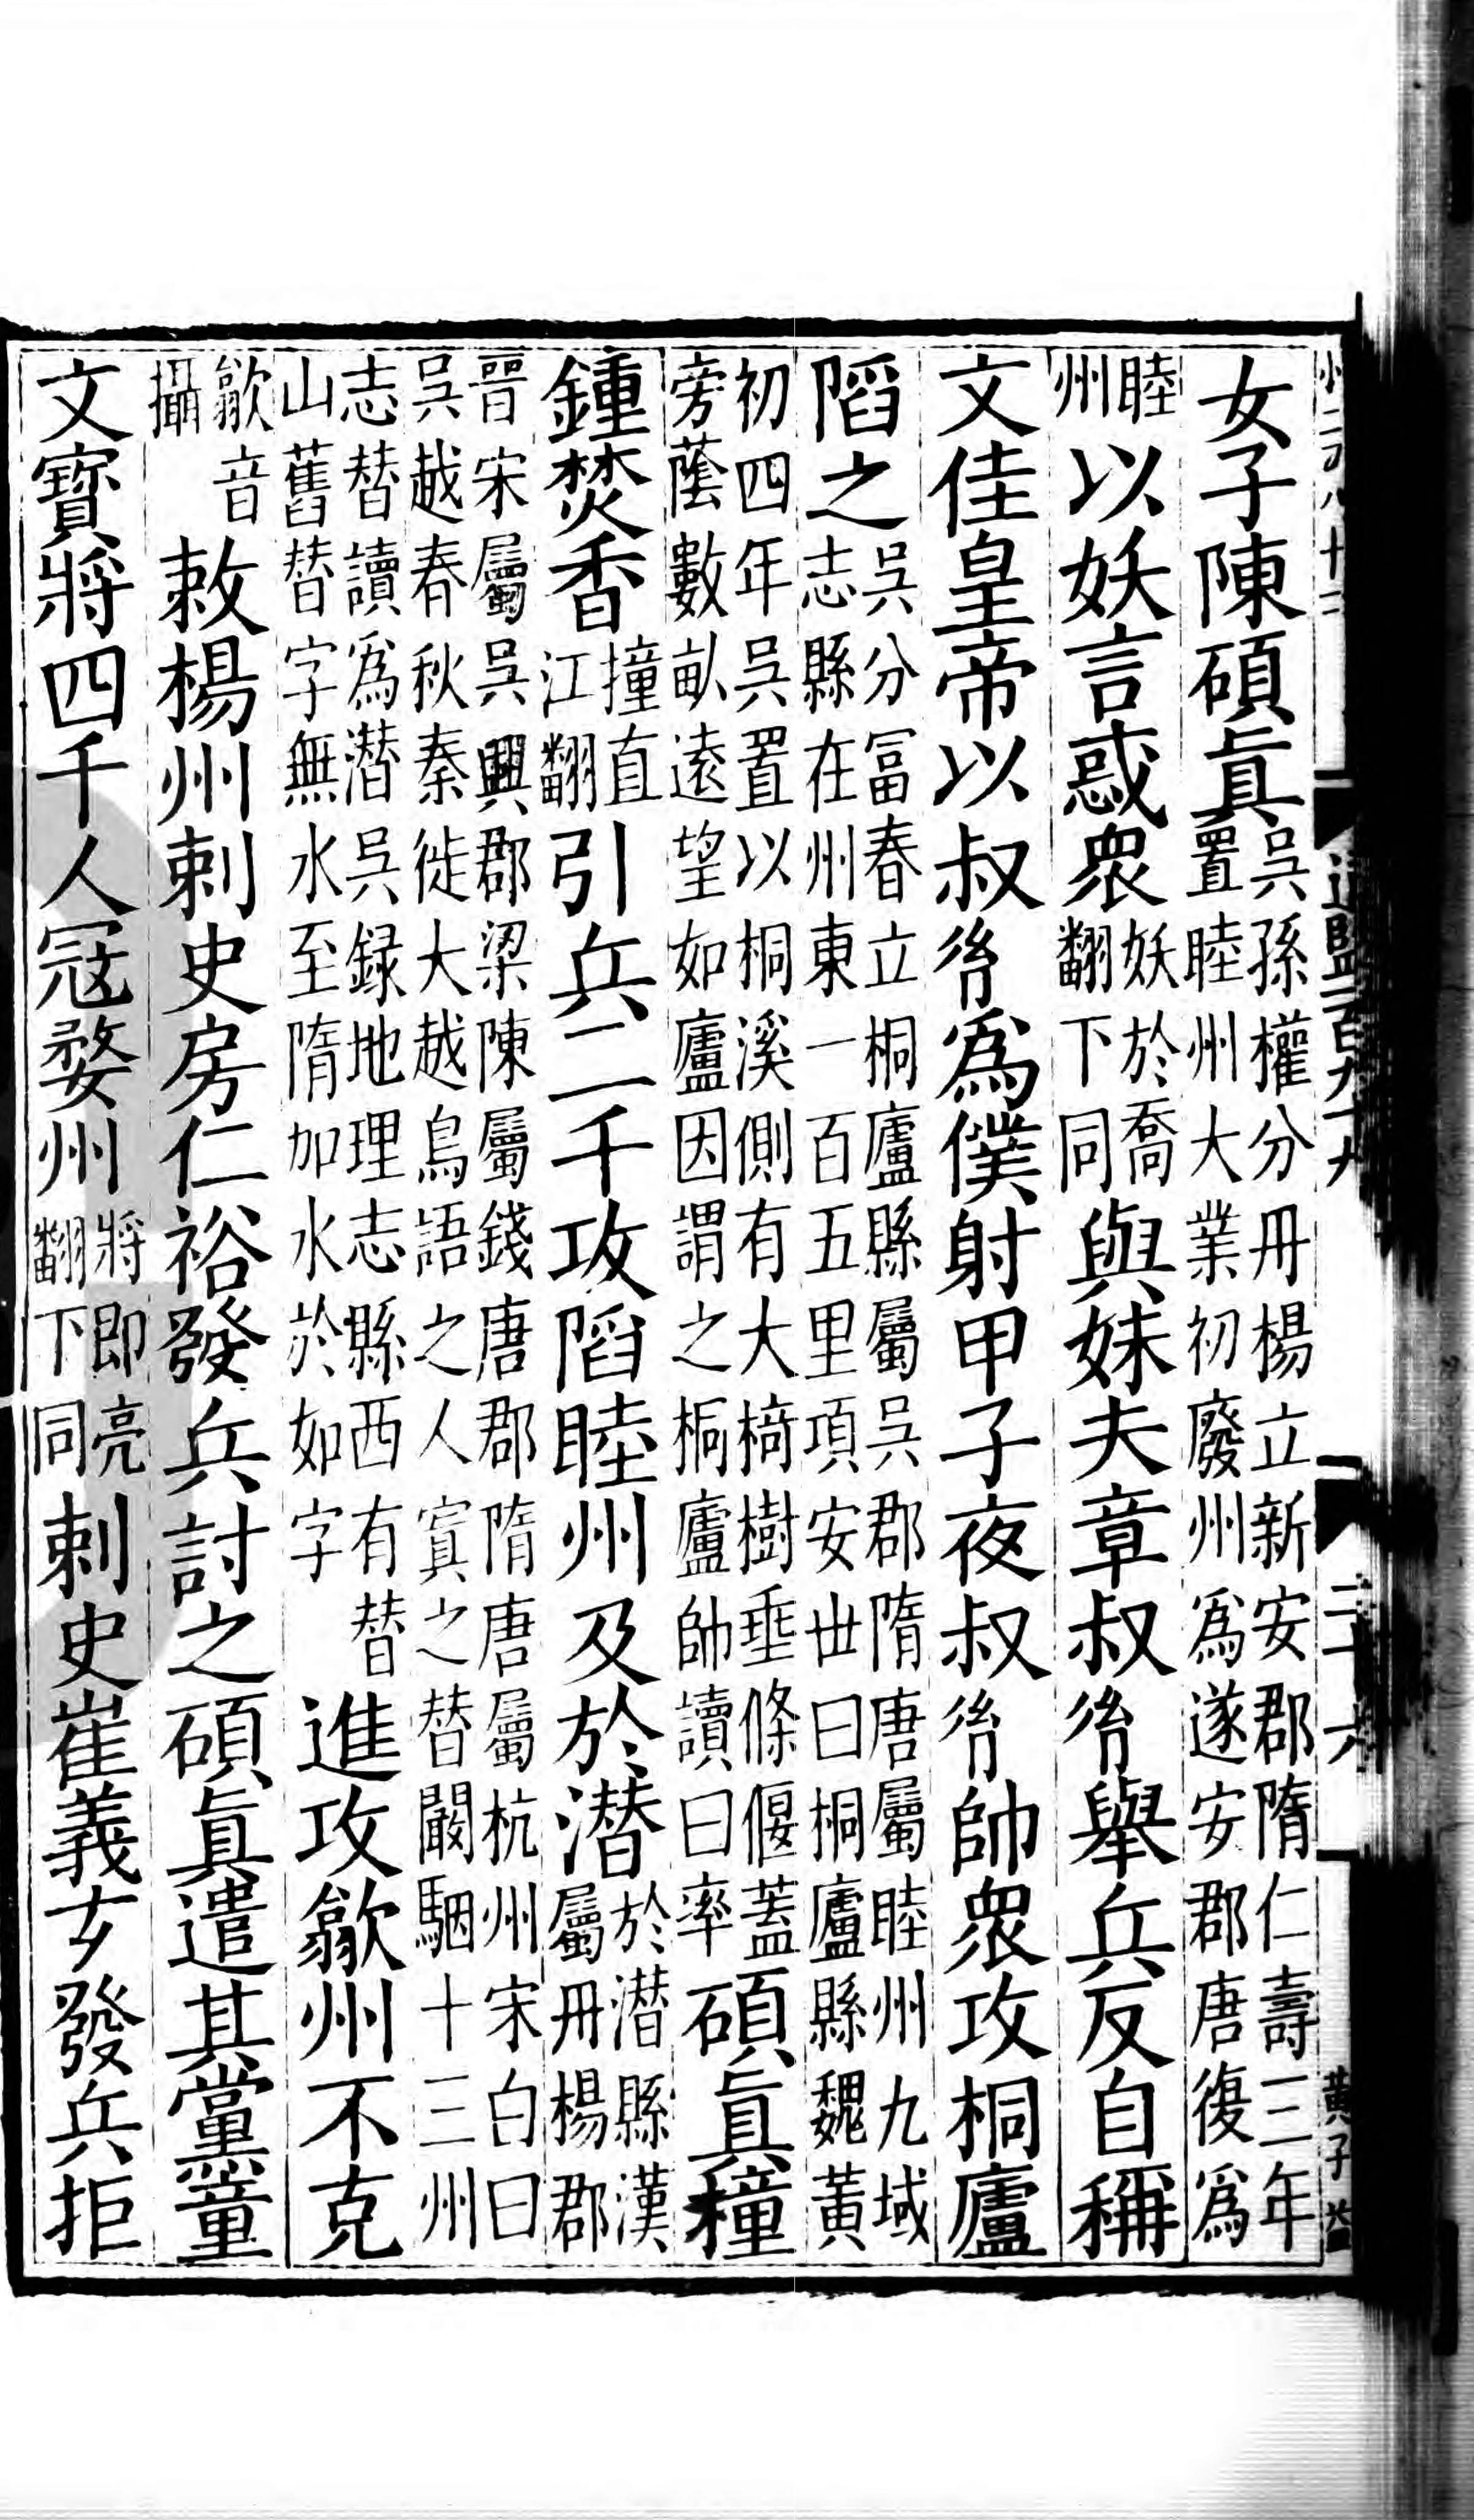 女子陳碩眞吳孫權分丹楊立新安郡隋仁壽三年置睦州大業初廢州爲遂安郡唐復爲
睦州以妖言惑衆妖於喬翻下同與妹夫章叔胤舉兵反自稱
文佳皇帝以叔胤爲僕射甲子夜叔胤帥衆攻桐廬
陷之吳分冨春立桐廬縣屬吳郡隋唐屬睦州九域志縣在州東一百五里項安世曰桐廬縣魏黃
初四年吳置以桐溪側有大椅樹垂條偃蓋旁蔭數畝遠望如廬因謂之桐廬帥讀曰率碩眞撞
鍾焚香撞直江翻引兵二千攻陷睦州及於潛於潛縣漢屬丹楊郡
晉宋屬吳興郡梁陳屬錢唐郡隋唐屬杭州宋白曰吳越春秋秦徙大越鳥語之人寘之朁闞駰十三州
志朁讀爲潛吳録地理志縣西有朁山舊朁字無水至隋加水於如字進攻歙州不克
歙音攝敕楊州刺史房仁裕發兵討之碩眞遣其黨童
文寶將四千人冦婺州將即亮翻下同刺史崔義玄發兵拒
通鑑一百九十九
二十六